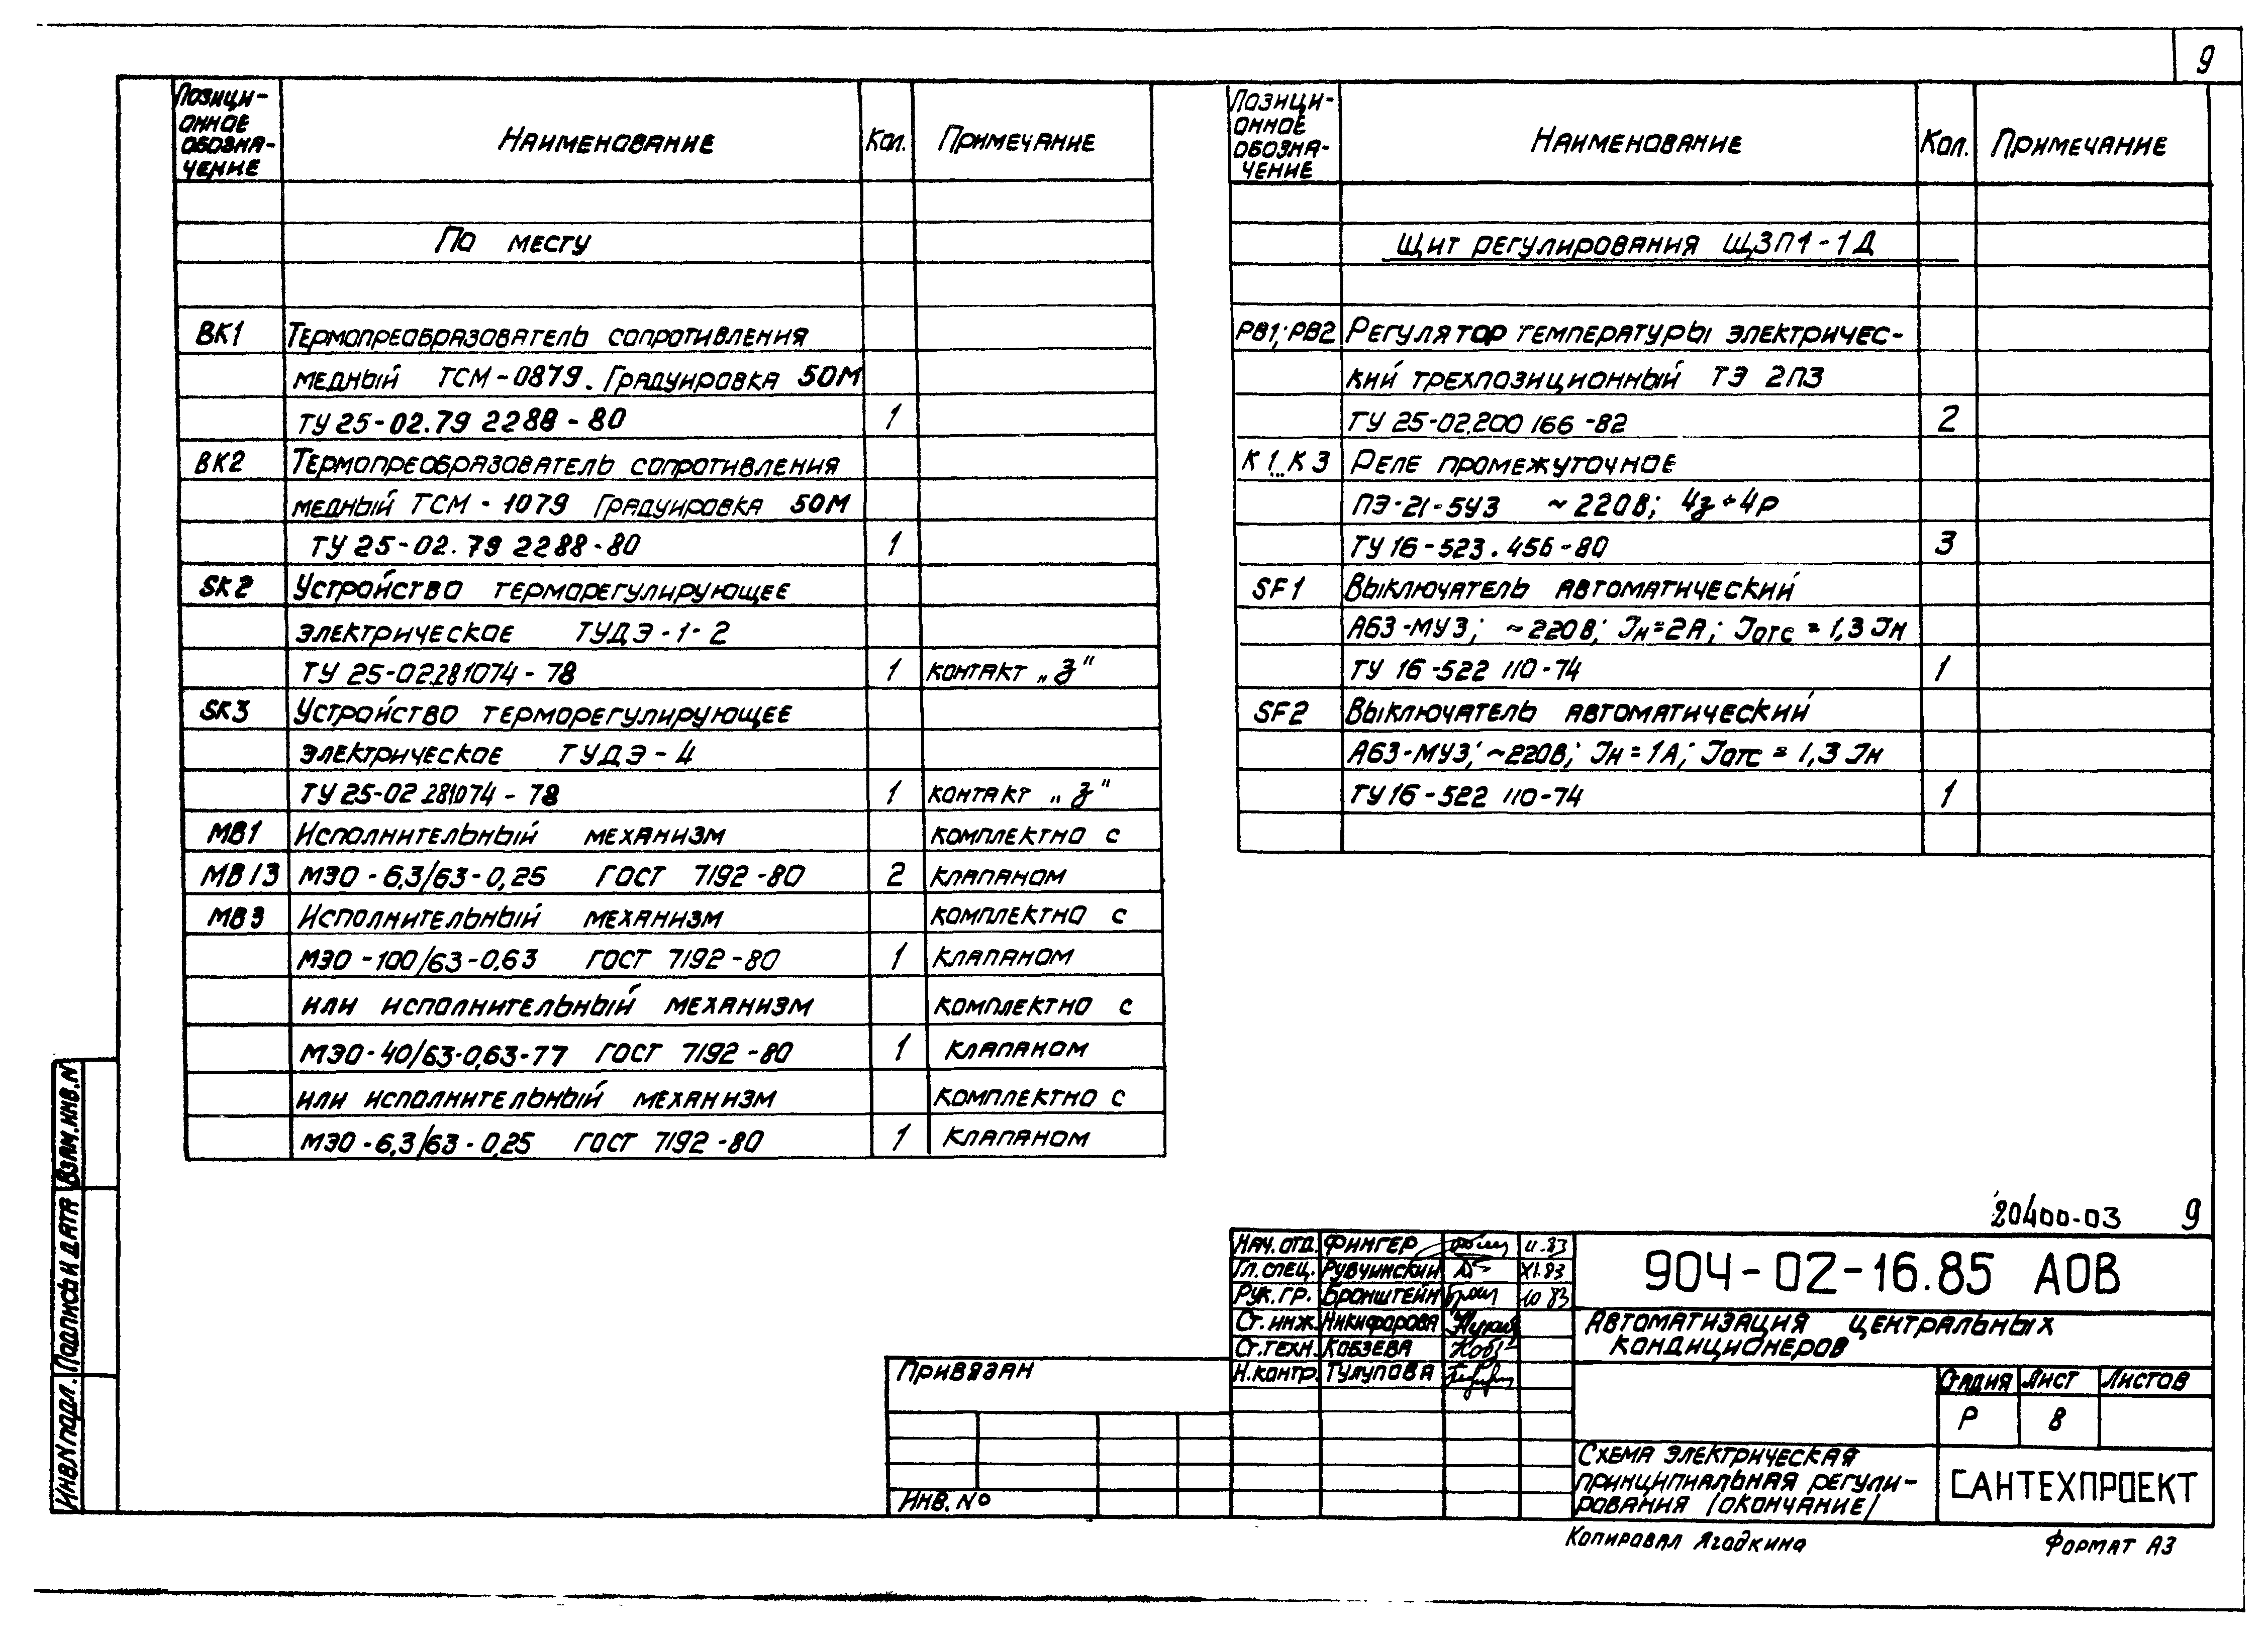 9
Позици-
онное
обозна-
чение
Наименование
Кол.
Примечание
По месту
ВК1 Термопреобразователь сопротивления
медный ТСМ-0879. Градуировка 50М
ТУ 25-02.79 2288-80 1
ВК2 Термопреобразователь сопротивления
медный ТСМ-1079 Градуировка 50М
ТУ 25-02.79 2288-80 1
SK2 Устройство терморегулирующее
электрическое ТУДЭ-1-2
ТУ 25-02.281074-78 1 контакт „з"
SK3 Устройство терморегулирующее
электрическое ТУДЭ-4
ТУ 25-02 281074-78 1 контакт „з"
МВ1 Исполнительный механизм комплектно с
МВ13 МЭО-6,3/63-0,25 ГОСТ 7192-80 2 клапаном
МВ3 Исполнительный механизм комплектно с
МЭО-100/63-0.63 ГОСТ 7192-80 1 клапаном
или исполнительный механизм комплектно с
МЭО-40/63-0,63-77 ГОСТ 7192-80 1 клапаном
или исполнительный механизм комплектно с
МЭО-6,3/63-0,25 ГОСТ 7192-80 1 клапаном
Позици-
онное
обозна-
чение
Наименование
Кол.
Примечание
Щит регулирования ЩЗП1-1Д
РВ1; РВ2 Регулятор температуры электричес-
кий трехпозиционный ТЭ 2П3
ТУ 25-02.200 166-82 2
К1...К3 Реле промежуточное
ПЭ-21-5У3 ~220В; 4з+4р
ТУ 16-523.456-80 3
SF1 Выключатель автоматический
А63-МУ3; ~220В; Iн=2А; Iотс=1,3 Iн
ТУ 16-522 110-74 1
SF2 Выключатель автоматический
А63-МУ3; ~220В; Iн=1А; Iотс=1,3 Iн
ТУ 16-522 110-74 1
20400-03 9
Взам.инв.N
Подпись и дата
Инв.N подл.
Привязан
Инв. №
Нач. отд. Фингер 11.83
Гл. спец. Рувчинский XI.83
Рук. гр. Бронштейн 10 83
Ст. инж. Никифорова
Ст. техн. Кобзева
Н. контр. Тулупова
904-02-16.85 АОВ
Автоматизация центральных
кондиционеров
Стадия Лист Листов
Р 8
Схема электрическая
принципиальная регули-
рования /окончание/
САНТЕХПРОЕКТ
Копировал Ягодкина
Формат А3